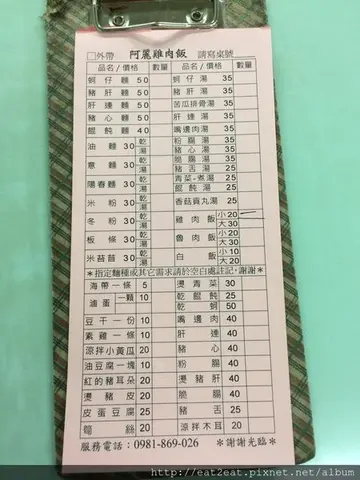 □外帶 阿麗雞肉飯 請寫桌號
品名/價格 數量 品名/價格 數量
蚵仔麵 50 蚵仔湯 35
豬肝麵 50 豬肝湯 35
肝連麵 50 苦瓜排骨湯 35
豬心麵 50 肝連湯 35
餛飩麵 40 嘴邊肉湯 35
油麵 30 乾 湯 粉腸湯 35
豬心湯 35
意麵 30 乾 湯 脆腸湯 35
豬舌湯 25
陽春麵 30 乾 湯 青菜-煮湯 25
餛飩湯 25
米粉 30 乾 湯 香菇貢丸湯 25
冬粉 30 乾 湯 雞肉飯 小20 大30
板條 30 乾 湯 魯肉飯 小20 大30
米苔苜 30 乾 湯 白飯 小10 大20
*指定麵種或其它需求請於空白處註記,謝謝*
海帶一條 5 燙青菜 30
滷蛋 一顆 10 乾餛飩 25
乾蚵 50
豆干一份 10 嘴邊肉 40
素雞一條 10 肝連 40
涼拌小黃瓜 20 豬心 40
油豆腐一塊 10 粉腸 40
紅的豬耳朵 20 燙豬肝 40
燙豬皮 20 脆腸 40
皮蛋豆腐 25 豬舌 25
鴨絲 20 涼拌木耳 20
服務電話:0981-869-026 *謝謝光臨*
http://eat2eat.pixnet.net/album